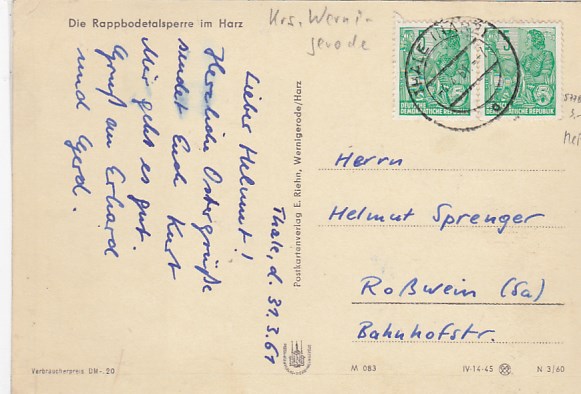 Die Rappbodetalsperre im Harz
Krs. Werni-
gerode
Thale, d. 31.3.61
Lieber Helmut!
Herzliche Ostergrüße
sendet Euch Kurt
Mir geht es gut.
Gruß an Erhard
und Gerd.
Postkartenverlag E. Riehn, Wernigerode/Harz
THALE (HARZ)
DEUTSCHE
DEMOKRATISCHE REPUBLIK
5
DEUTSCHE
DEMOKRATISCHE REPUBLIK
5
Herrn
Helmut Sprenger
Roßwein (Sa)
Bahnhofstr.
Verbraucherpreis DM -.20
M 083
IV-14-45
N 3/60